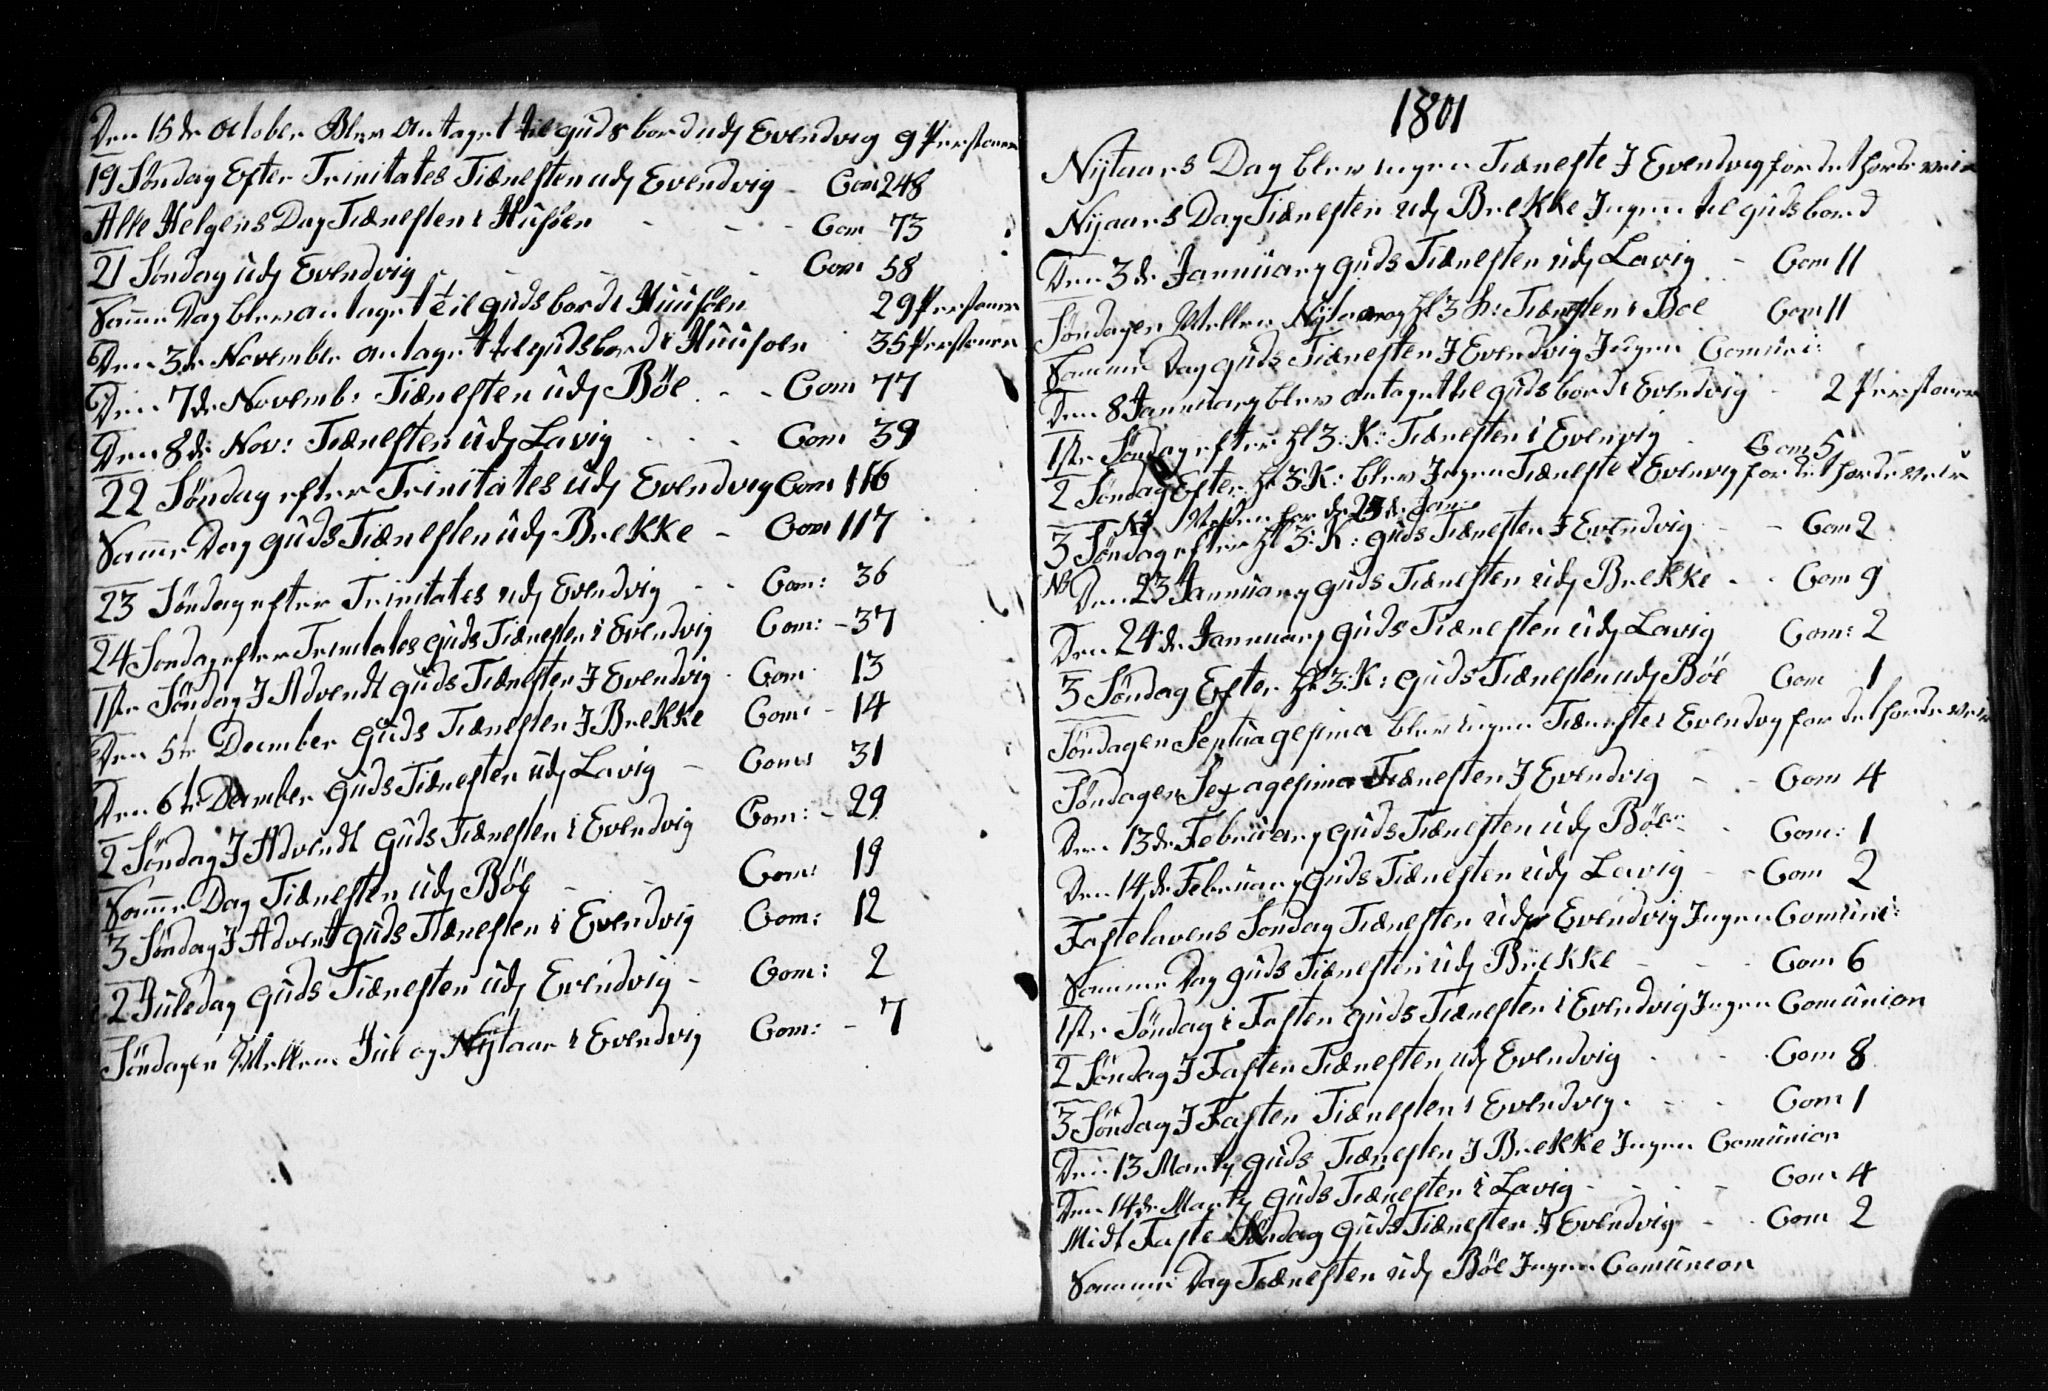 Den 15de October Blev Antaget til guds bord udj Evendvig 9 Perstoner
19 Søndag Efter Trinitates Tiænesten udj Evendvig - Com 248
Alle Helgens Dag Tiænesten i Husøen - - - Com 73
21 Søndag udj Evendvig - - - - Com 58
Samme Dag blev antaget til guds bord i Huusøen 29 Perstoner
Den 3de November antaget til guds bord i Huusøen 35 Perstoner
Den 7de Novemb: Tiænesten udj Böe - - Com 77
Den 8de Nov: Tiænesten udj Lavig - - - Com 39
22 Søndag efter Trinitates udj Evendvig Com 116
Samme Dag guds Tiænesten udj Brekke - Com 117
23 Søndag efter Trinitates udj Evendvig - - Com: 36
24 Søndag efter Trinitates guds Tiænesten i Evendvig Com: - 37
1ste Søndag I Advendt guds Tiænesten I Evendvig - Com: 13
Den 5te December guds Tiænesten I Brekke Com: - 14
Den 6te December guds Tiænesten udj Lavig - Com: 31
2 Søndag I Advendt guds Tiænesten i Evendvig Com: - 29
Samme Dag Tiænesten udj Böe - - Com: 19
3 Søndag I Advent guds Tiænesten i Evendvig Com: 12
2 Juledag guds Tiænesten udj Evendvig - Com: 2
Søndagen Mellem Jul og Nÿtaar i Evendvig Com: - 7
1801
Nÿtaars Dag blev ingen Tiæneste I Evendvig for det haarde veir
Nÿaars Dag Tiænesten udj Brekke Ingen til guds bord
Den 3de Januuary guds Tiænesten udj Lavig - Com 11
Søndagen Mellem Nÿtaar og hl 3 k: Tiænesten i Boe Com 11
Samme Dag guds Tiænesten I Evendvig Ingen Comuni:
Den 8 Januuary blev antaget til guds bord i Evendvig - 2 Perstoner
1ste Søndag efter hl 3: K: Tiænesten i Evenvig - Com 5
2 Søndag Efter hl 3: K: blev Ingen Tiæneste i Evenvig for det haarde veir
NB for de 23de Jan:
3 Søndag efter hl 3: K: guds Tiænesten I Evendvig - - Com 2
NB Den 23 Januuary guds Tiænesten udj Brekke - - Com 9
Den 24de Januuary guds Tiænesten udj Lavig Com: 2
3 Søndag Efter hl 3: K: guds Tiænesten udj Böe Com 1
Søndagen Septuagesima blev ingen Tiæneste i Evendvig for det haarde veir
Søndagen Sexagesima Tiænesten I Evendvig - - Com 4
Den 13de Februuary guds Tiænesten udj Böe - - Com: 1
Den 14de Februuary guds Tiænesten udj Lavig - - Com 2
Fastelavens Søndag Tiænesten udj Evendvig Ingen Comuni:
Samme Dag guds Tiænesten udj Brekke - - - Com 6
1ste Søndag i Fasten guds Tiænesten i Evendvig Ingen Comunion
2 Søndag I Fasten Tiænesten udj Evendvig - - - Com 8
3 Søndag I Fasten Tiænesten i Evendvig - - - Com 1
Den 13 Martÿ guds Tiænesten I Brekke Ingen Comunion
Den 14de Martÿ guds Tiænesten i Lavig - - - - Com 4
Midt Faste Søndag guds Tiænesten I Evendvig - - Com 2
Samme Dag Tiænesten udj Böe Ingen Comunion